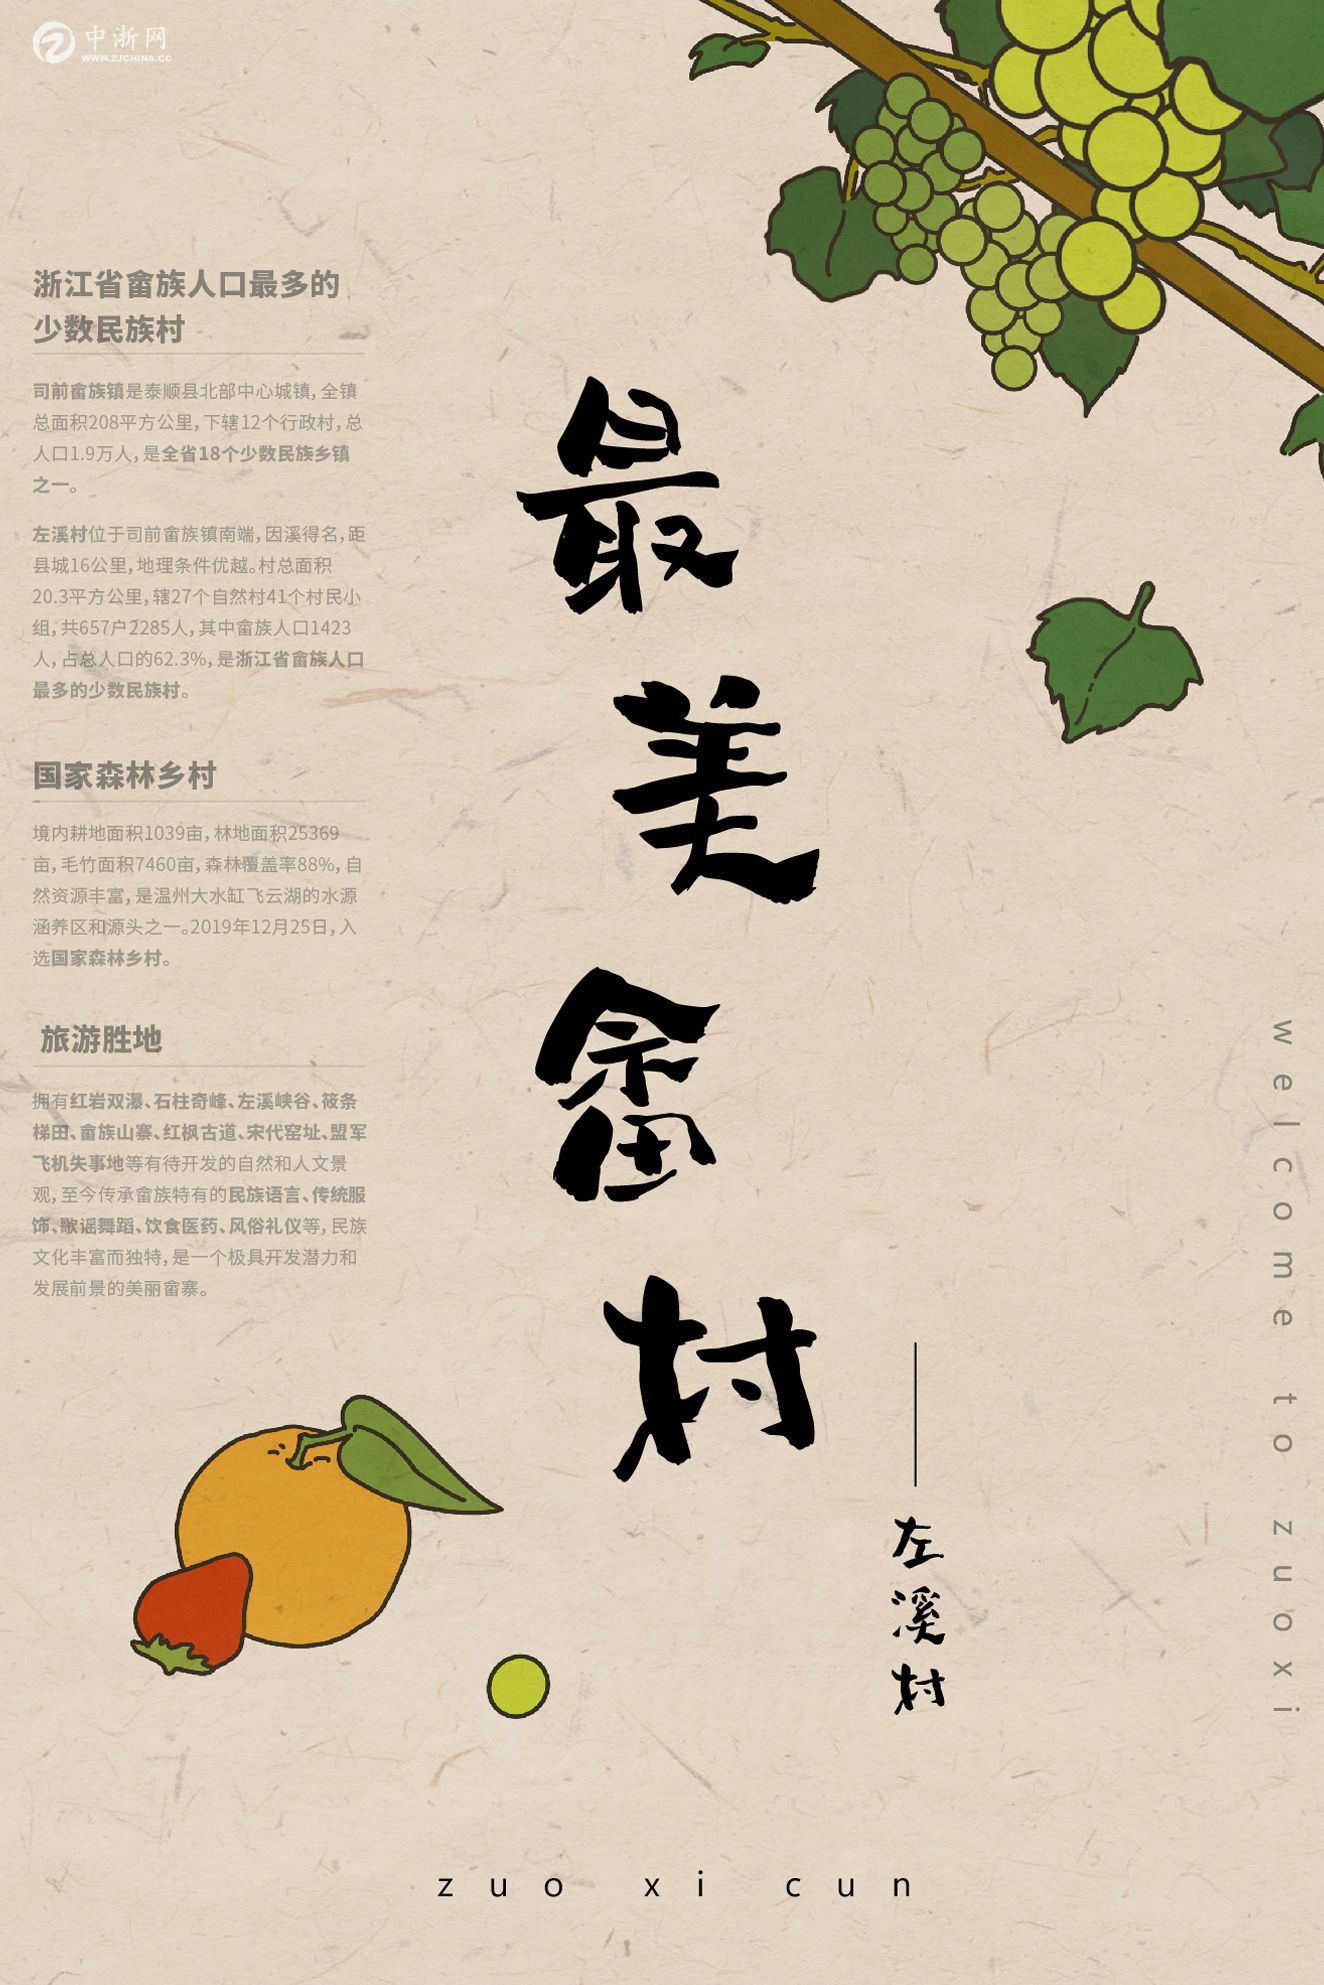 中浙网
WWW.ZJCHINA.CC
浙江省畲族人口最多的
少数民族村
司前畲族镇是泰顺县北部中心城镇，全镇
总面积208平方公里，下辖12个行政村，总
人口1.9万人，是全省18个少数民族乡镇
之一。
左溪村位于司前畲族镇南端，因溪得名，距
县城16公里，地理条件优越。村总面积
20.3平方公里，辖27个自然村41个村民小
组，共657户2285人，其中畲族人口1423
人，占总人口的62.3%，是浙江省畲族人口
最多的少数民族村。
国家森林乡村
境内耕地面积1039亩，林地面积25369
亩，毛竹面积7460亩，森林覆盖率88%，自
然资源丰富，是温州大水缸飞云湖的水源
涵养区和源头之一。2019年12月25日，入
选国家森林乡村。
旅游胜地
拥有红岩双瀑、石柱奇峰、左溪峡谷、筱条
梯田、畲族山寨、红枫古道、宋代窑址、盟军
飞机失事地等有待开发的自然和人文景
观，至今传承畲族特有的民族语言、传统服
饰、歌谣舞蹈、饮食医药、风俗礼仪等，民族
文化丰富而独特，是一个极具开发潜力和
发展前景的美丽畲寨。
最美畲村
左溪村
welcome to zuoxi
zuo xi cun